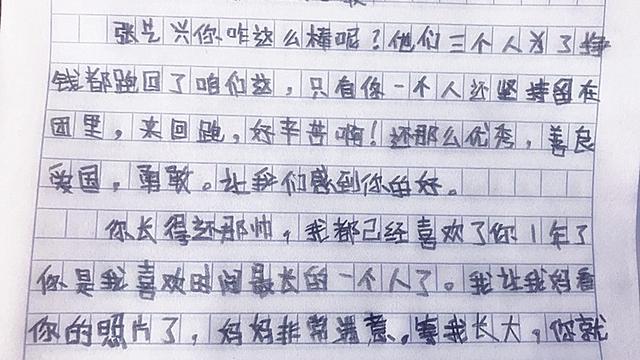 张艺兴你咋这么棒呢？他们三个人为了挣
钱都跑回了咱们这，只有你一个人还坚持留在
团里，来回跑，好辛苦啊！还那么优秀，善良
爱国，勇敢。让我们感到你的好。
你长得还那帅，我都已经喜欢了你1年了
你是我喜欢时间最长的一个人了。我让我妈看
你的照片了，妈妈非常满意。等我长大，你就